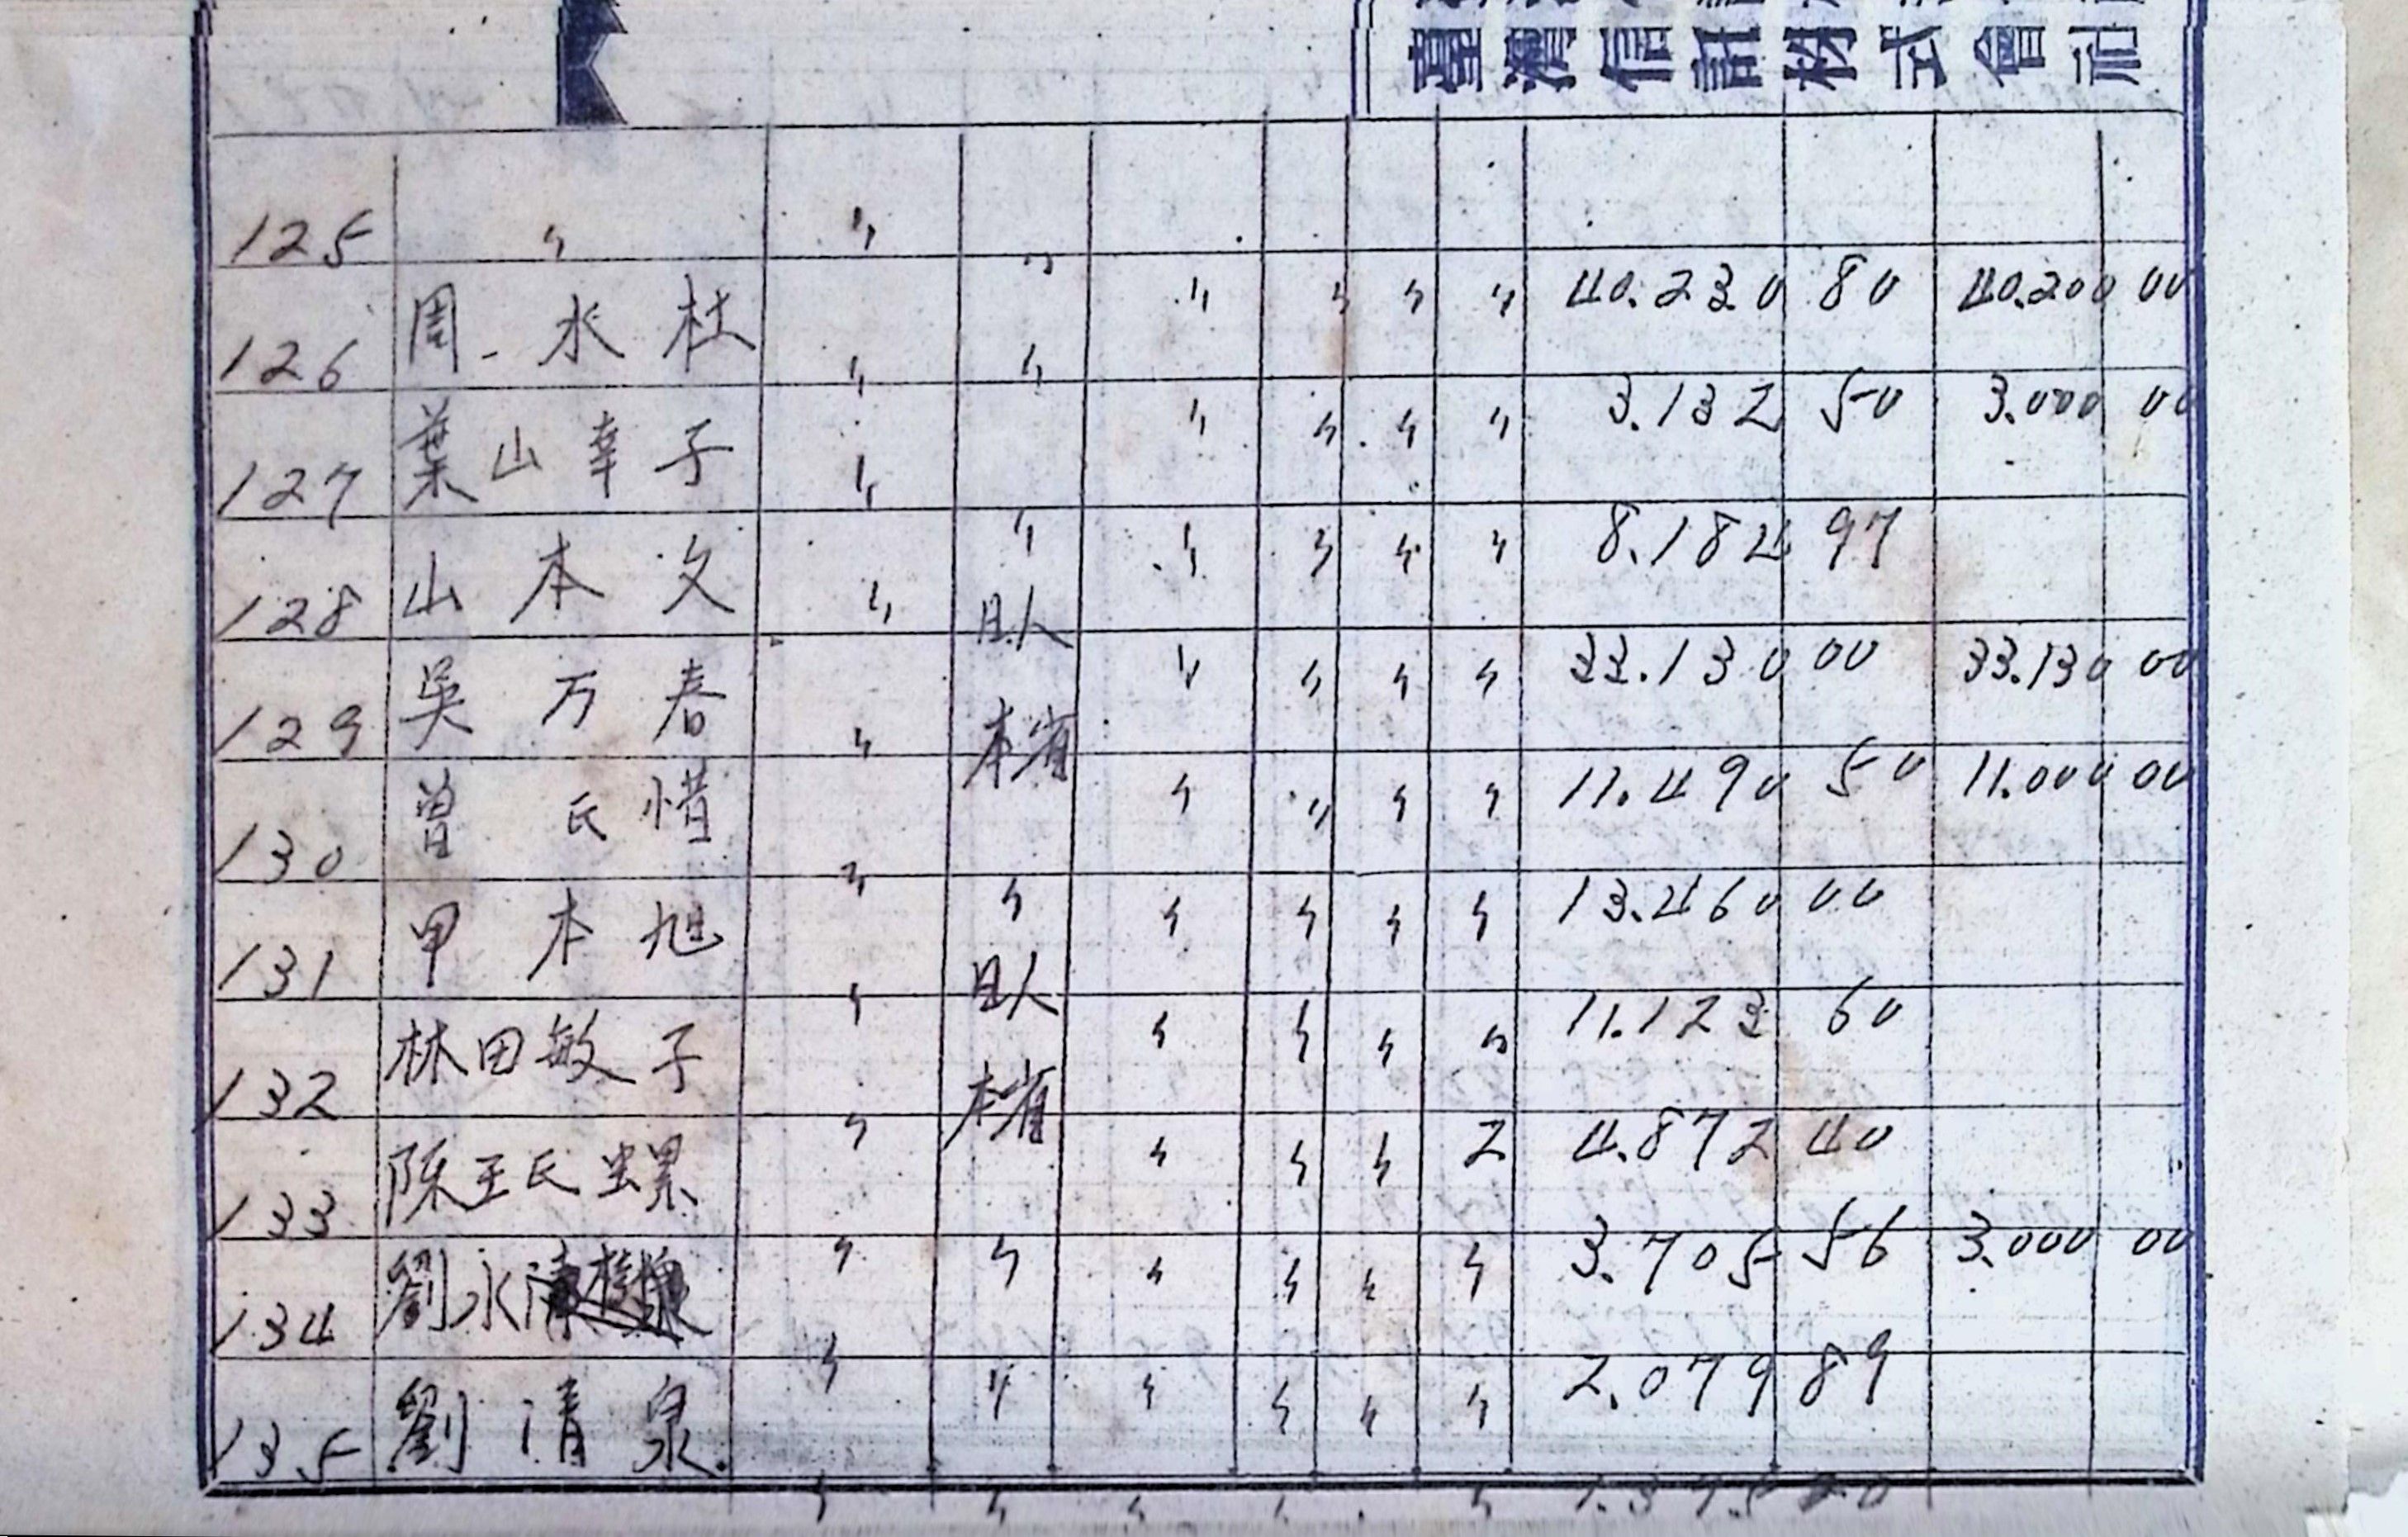 臺灣信託株式會社
125 〃 〃 〃 〃 〃 〃 〃 40.230 80 40.200 00
126 周水杜 〃 〃 〃 〃 〃 〃 3.132 50 3.000 00
127 葉山幸子 〃 〃 〃 〃 〃 〃 8.184 97
128 山本文 〃 日人 〃 〃 〃 〃 33.130 00 33.130 00
129 吳万春 〃 本省 〃 〃 〃 〃 11.490 50 11.000 00
130 曾氏惜 〃 〃 〃 〃 〃 〃 13.460 00
131 甲本旭 〃 日人 〃 〃 〃 〃 11.123 60
132 林田敏子 〃 本省 〃 〃 〃 2 4.872 40
133 陳王氏螺 〃 〃 〃 〃 〃 〃 3.705 56 3.000 00
134 劉永 〃 〃 〃 〃 〃 〃 2.079 89
135 劉清泉 〃 〃 〃 〃 〃